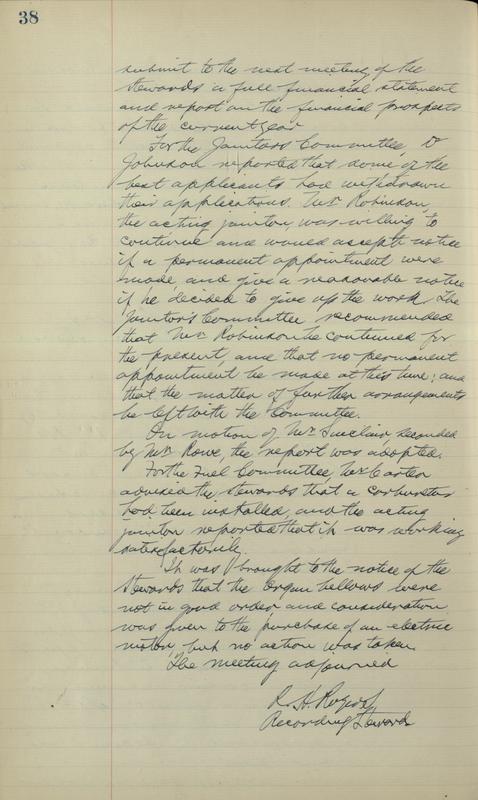 38
submit to the next meeting of the
Stewards a full financial statement
and report on the financial prospects
of the current year
For the Janitors Committee Dr
Johnson reported that some of the
best applicants had withdrawn
their applications. Mr. Robinson,
the acting janitor, was willing to
continue and would accept notice
if a permanent appointment were
made, and give a reasonable notice
if he decided to give up the work. The
Janitor's Committee recommended
that Mr. Robinson be continued for
the present, and that no permanent
appointment be made at this time; and
that the matter of further arrangements
be left with the Committee.
On motion of Mr Sinclair, seconded
by Mr Rowe, the report was adopted.
For the Fuel Committee, Mr Carter
advised the Stewards that a carburetor
had been installed, and the acting
janitor reported that it was working
satisfactorily.
It was brought to the notice of the
Stewards that the organ bellows were
not in good order and consideration
was given to the purchase of an electric
motor, but no action was taken
The meeting adjourned
R. H. Rogers
Recording Steward